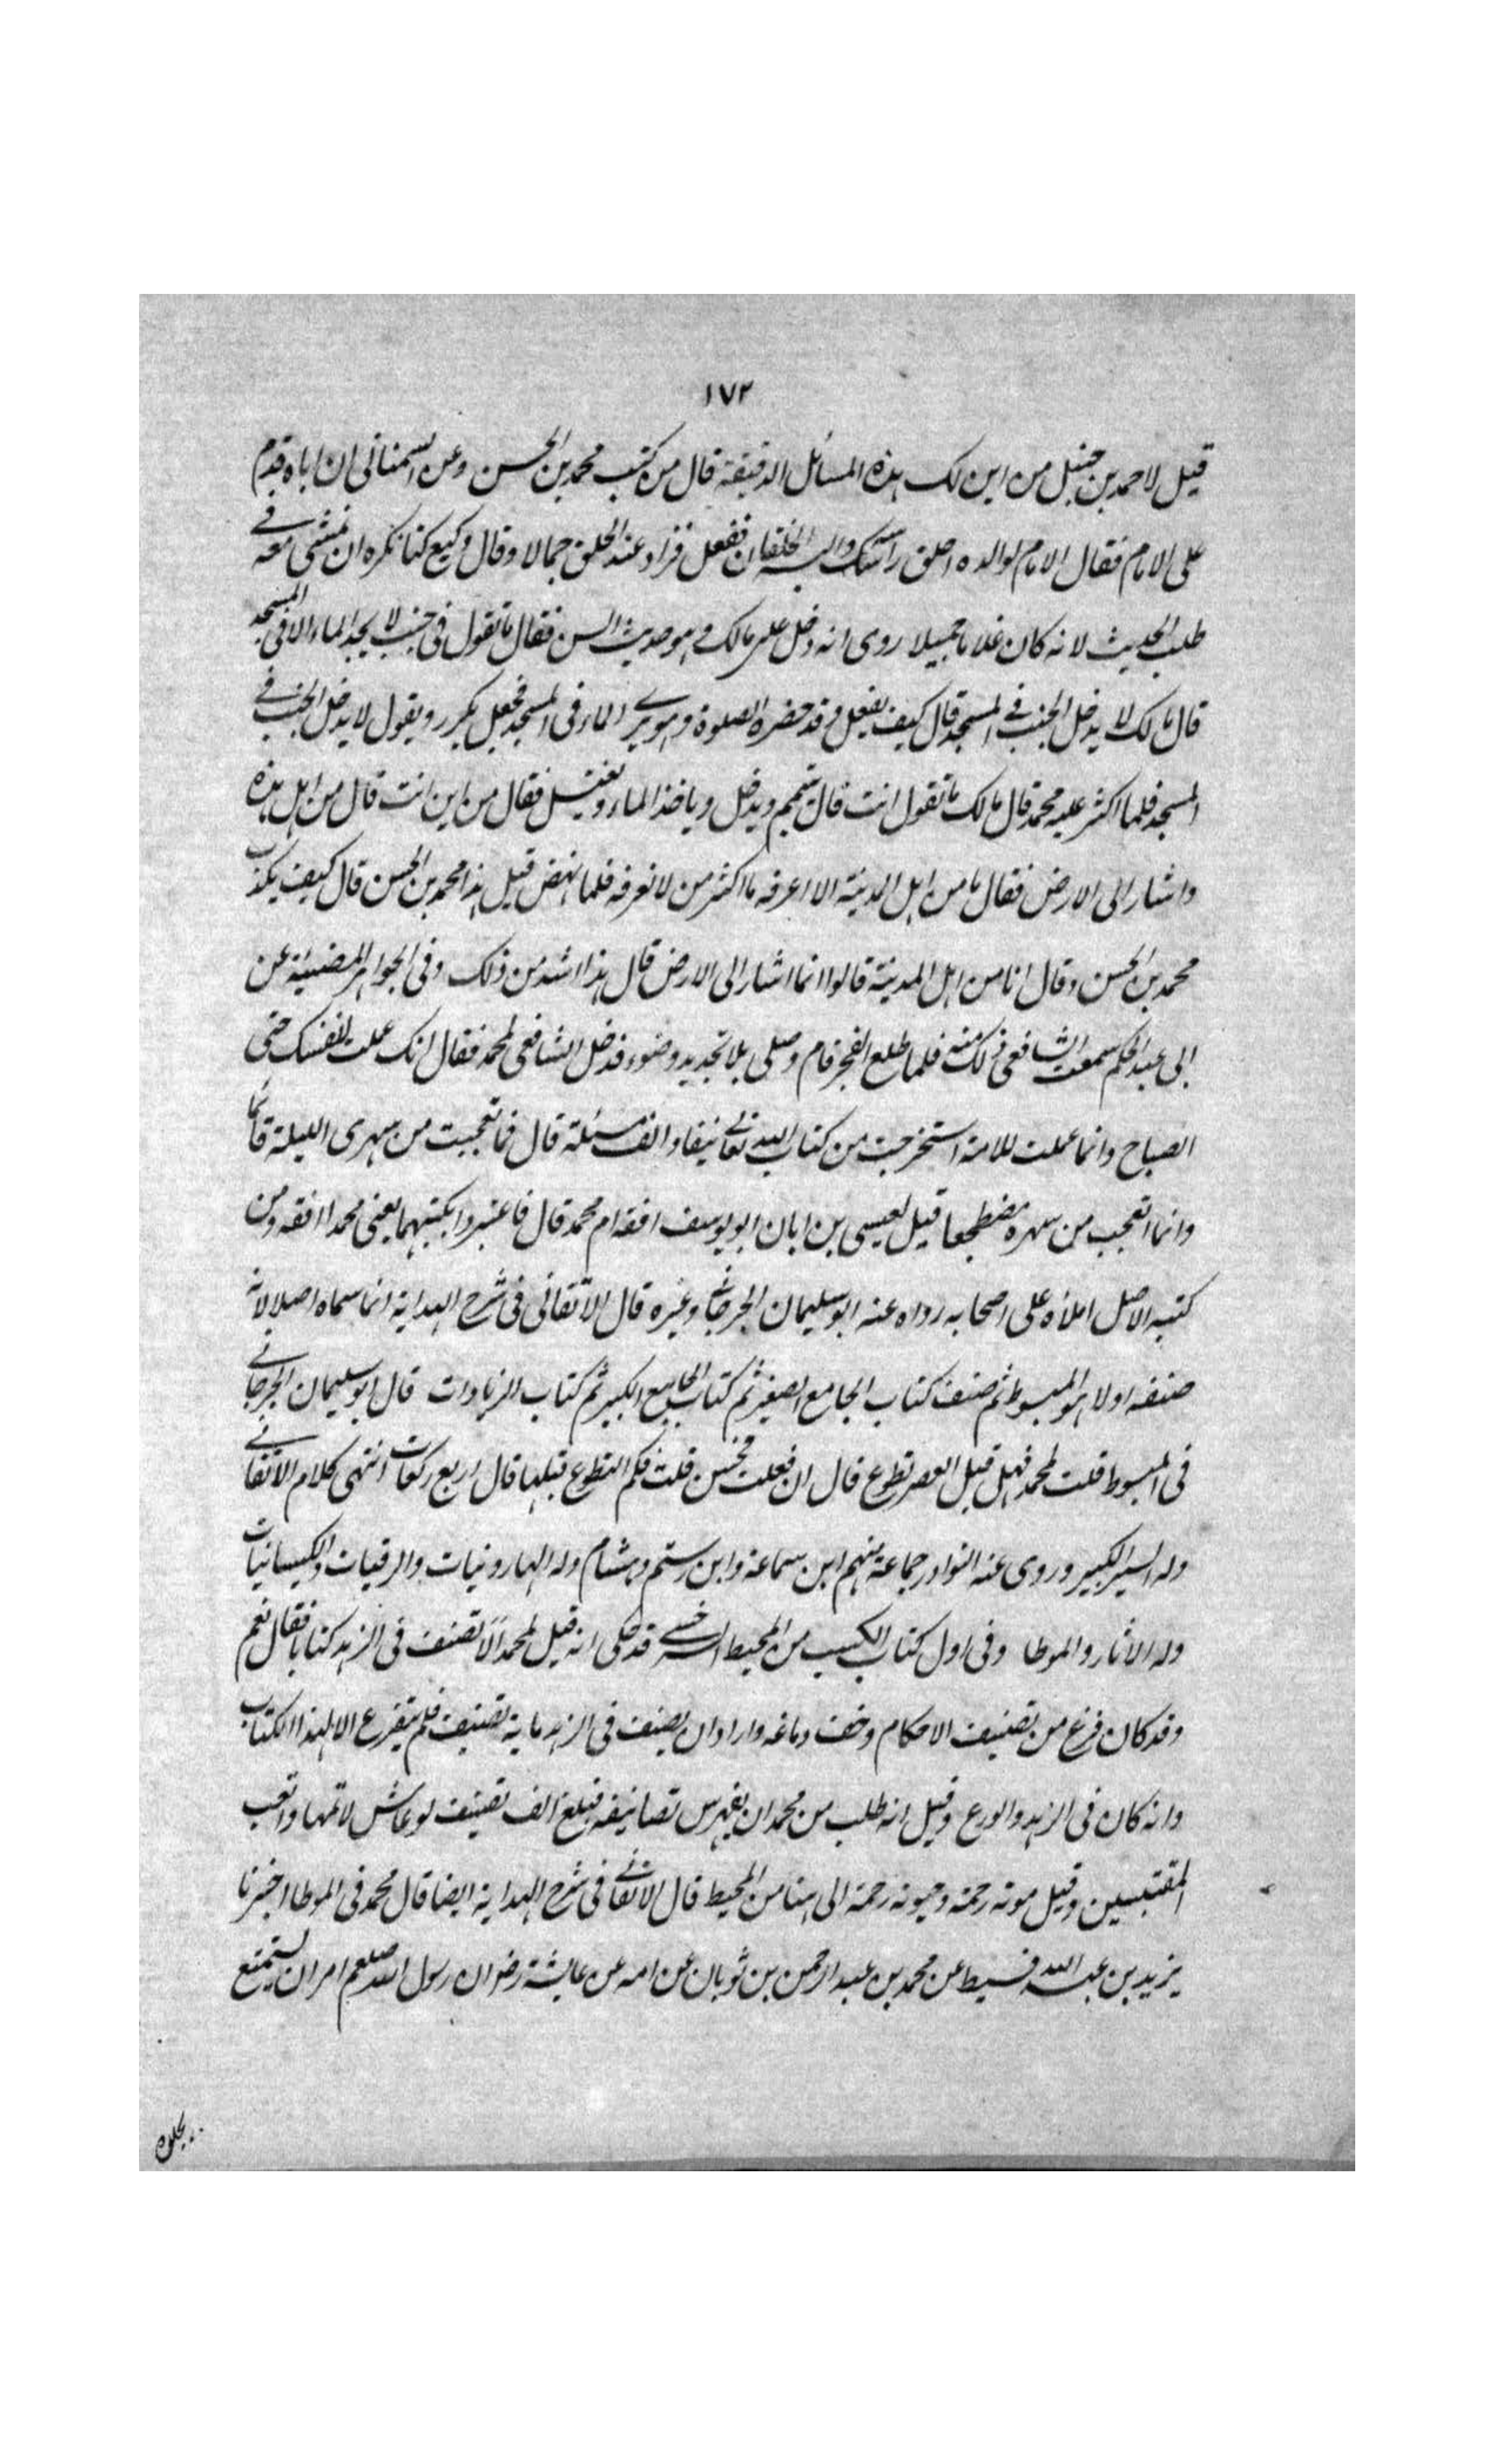 ١٧٢
قيل لاحمد بن حنبل من اين لك هذه المسائل الدقيقة قال من كتب محمد بن الحسن وعن السمنانى ان اباه قدم
على الامام فقال الامام لوالده احلق راسك والبسه الخلقان ففعل فزاد عند الحلق جمالا وقال وكيع كنا نكره ان نمشى معه فى
طلب الحديث لانه كان غلاما جميلا روى انه دخل على مالك وهو حديث السن فقال ما تقول فى جنب لا يجد الماء الا فى المسجد
قال مالك لا يدخل الجنب فى المسجد قال كيف يفعل وقد حضره الصلوة وهو يرى الماء فى المسجد فجعل يكرر ويقول لا يدخل الجنب فى
المسجد فلما اكثر عليه محمد قال مالك ما تقول انت قال يتيمم ويدخل وياخذ الماء ويغتسل فقال من اين انت قال من اهل هذه
واشار الى الارض فقال ما من اهل المدينة الا اعرفه ما اكثر من لا نعرفه فلما نهض قيل هذا محمد بن الحسن قال كيف يكذب
محمد بن الحسن وقال انا من اهل المدينة قالوا انما اشار الى الارض قال هذا اشد من ذلك وفى الجواهر المضيئة عن
ابى عبد الحكم سمعت الشافعى ذلك منه فلما طلع الفجر قام وصلى بلا تجديد وضوء فدخل الشافعى لمحمد فقال انك عملت لنفسك حتى
الصباح وانما عملت للامة استخرجت من كتاب الله تعالى نيفا والف مسئلة قال فما تعجبت من سهرى الليلة قائما
وانما اتعجب من سهره مضطجعا قيل لعيسى بن ابان ابو يوسف افقه ام محمد قال فاعتبروا بكتبهما يعنى محمدا افقه ومن
كتبه الاصل املأه على اصحابه رواه عنه ابو سليمان الجرجانى وغيره قال الاتقانى فى شرح الهداية انما سماه اصلا لانه
صنفه اولا هو المبسوط ثم صنف كتاب الجامع الصغير ثم كتاب الجامع الكبير ثم كتاب الزيادات قال ابو سليمان الجرجانى
فى المبسوط قلت لمحمد فهل قبل العصر تطوع قال ان فعلت فحسن قلت فكم التطوع قبلها قال اربع ركعات انتهى كلام الاتقانى
وله السير الكبير وروى عنه النوادر جماعة منهم ابن سماعة وابن رستم وهشام وله الهارونيات والرقيات والكيسانيات
وله الاثار والموطا وفى اول كتاب الكسب من المحيط السرخسى قد حكى انه قيل لمحمد الا تصنف فى الزهد كتابا فقال نعم
وقد كان فرغ من تصنيف الاحكام وخف دماغه واراد ان يصنف فى الزهد ماية تصنيف فلم يتفرع الا لهذا الكتاب
وانه كان فى الزهد والورع وقيل انه طلب من محمد ان يفهرس تصانيفه فبلغ الف تصنيف لو عاش لاتمها واتعب
المقتبسين وقيل موته رحمة وحيوته رحمة الى هنا من المحيط قال الاتقانى فى شرح الهداية ايضا قال محمد فى الموطا اخبرنا
يزيد بن عبد الله قسيط عن محمد بن عبد الرحمن بن ثوبان عن امه عن عايشة رض ان رسول الله صلعم امر ان يستمتع